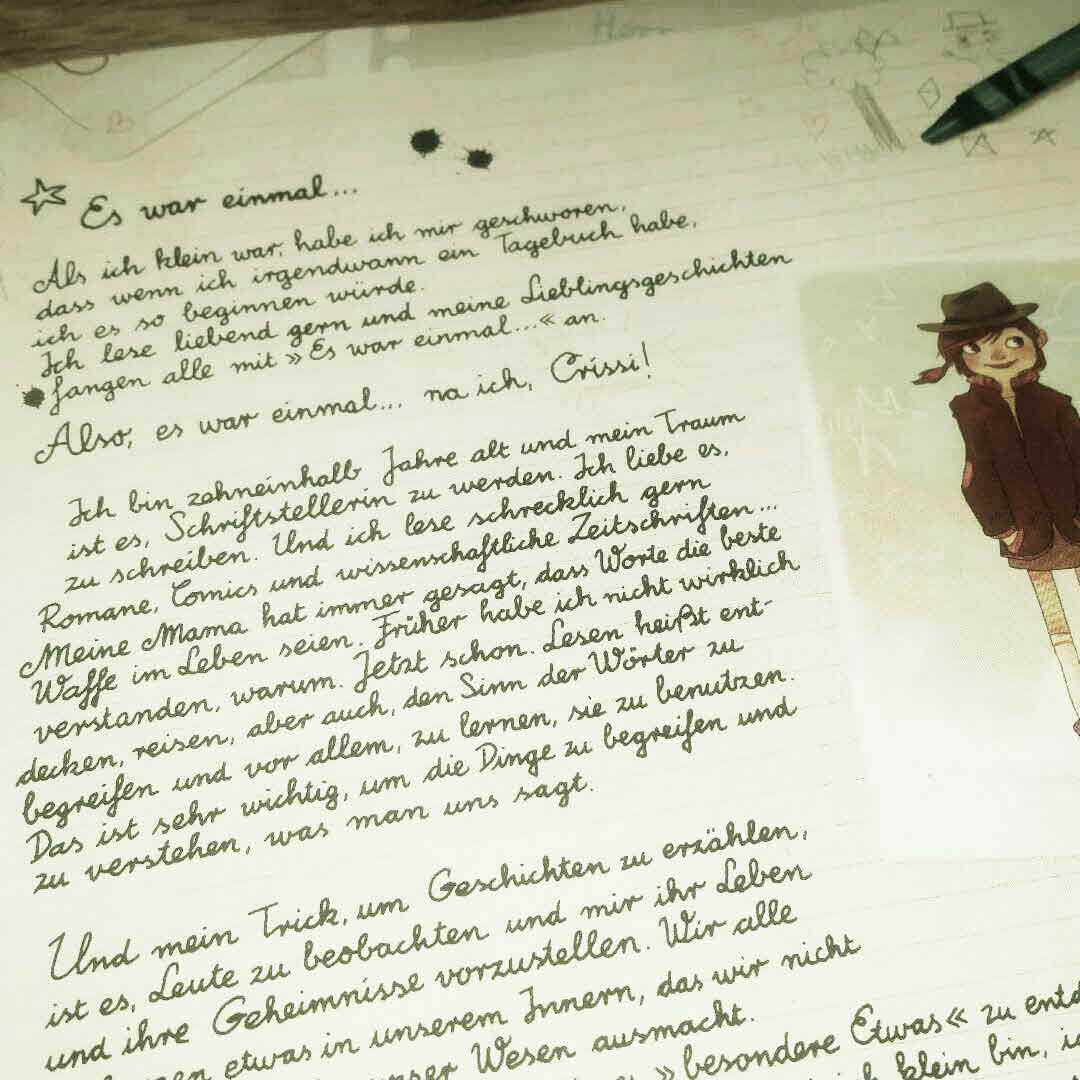 Es war einmal...
Als ich klein war, habe ich mir geschworen,
dass wenn ich irgendwann ein Tagebuch habe,
ich es so beginnen würde.
Ich lese liebend gern und meine Lieblingsgeschichten
fangen alle mit »Es war einmal...« an.
Also, es war einmal... na ich, Crissi!
Ich bin zehneinhalb Jahre alt und mein Traum
ist es, Schriftstellerin zu werden. Ich liebe es,
zu schreiben. Und ich lese schrecklich gern
Romane, Comics und wissenschaftliche Zeitschriften...
Meine Mama hat immer gesagt, dass Worte die beste
Waffe im Leben seien. Früher habe ich nicht wirklich
verstanden, warum. Jetzt schon. Lesen heißt ent-
decken, reisen, aber auch, den Sinn der Wörter zu
begreifen und vor allem, zu lernen, sie zu benutzen.
Das ist sehr wichtig, um die Dinge zu begreifen und
zu verstehen, was man uns sagt.
Und mein Trick, um Geschichten zu erzählen,
ist es, Leute zu beobachten und mir ihr Leben
und ihre Geheimnisse vorzustellen. Wir alle
etwas in unserem Innern, das wir nicht
Wesen ausmacht.
»besondere Etwas« zu
klein bin,